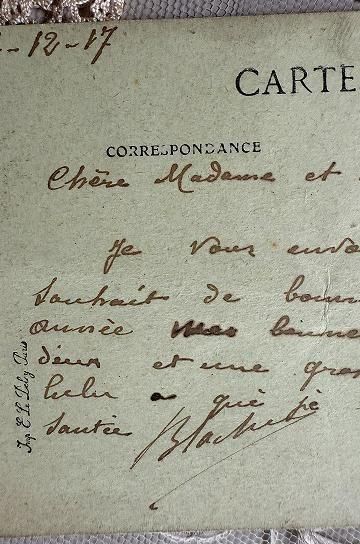 -12-17
CARTE
CORRESPONDANCE
Chère Madame et
Je vous envo
souhait de bonn
année bonne
deux et une gros
a que
santée
Imp. E. Le Deley Paris